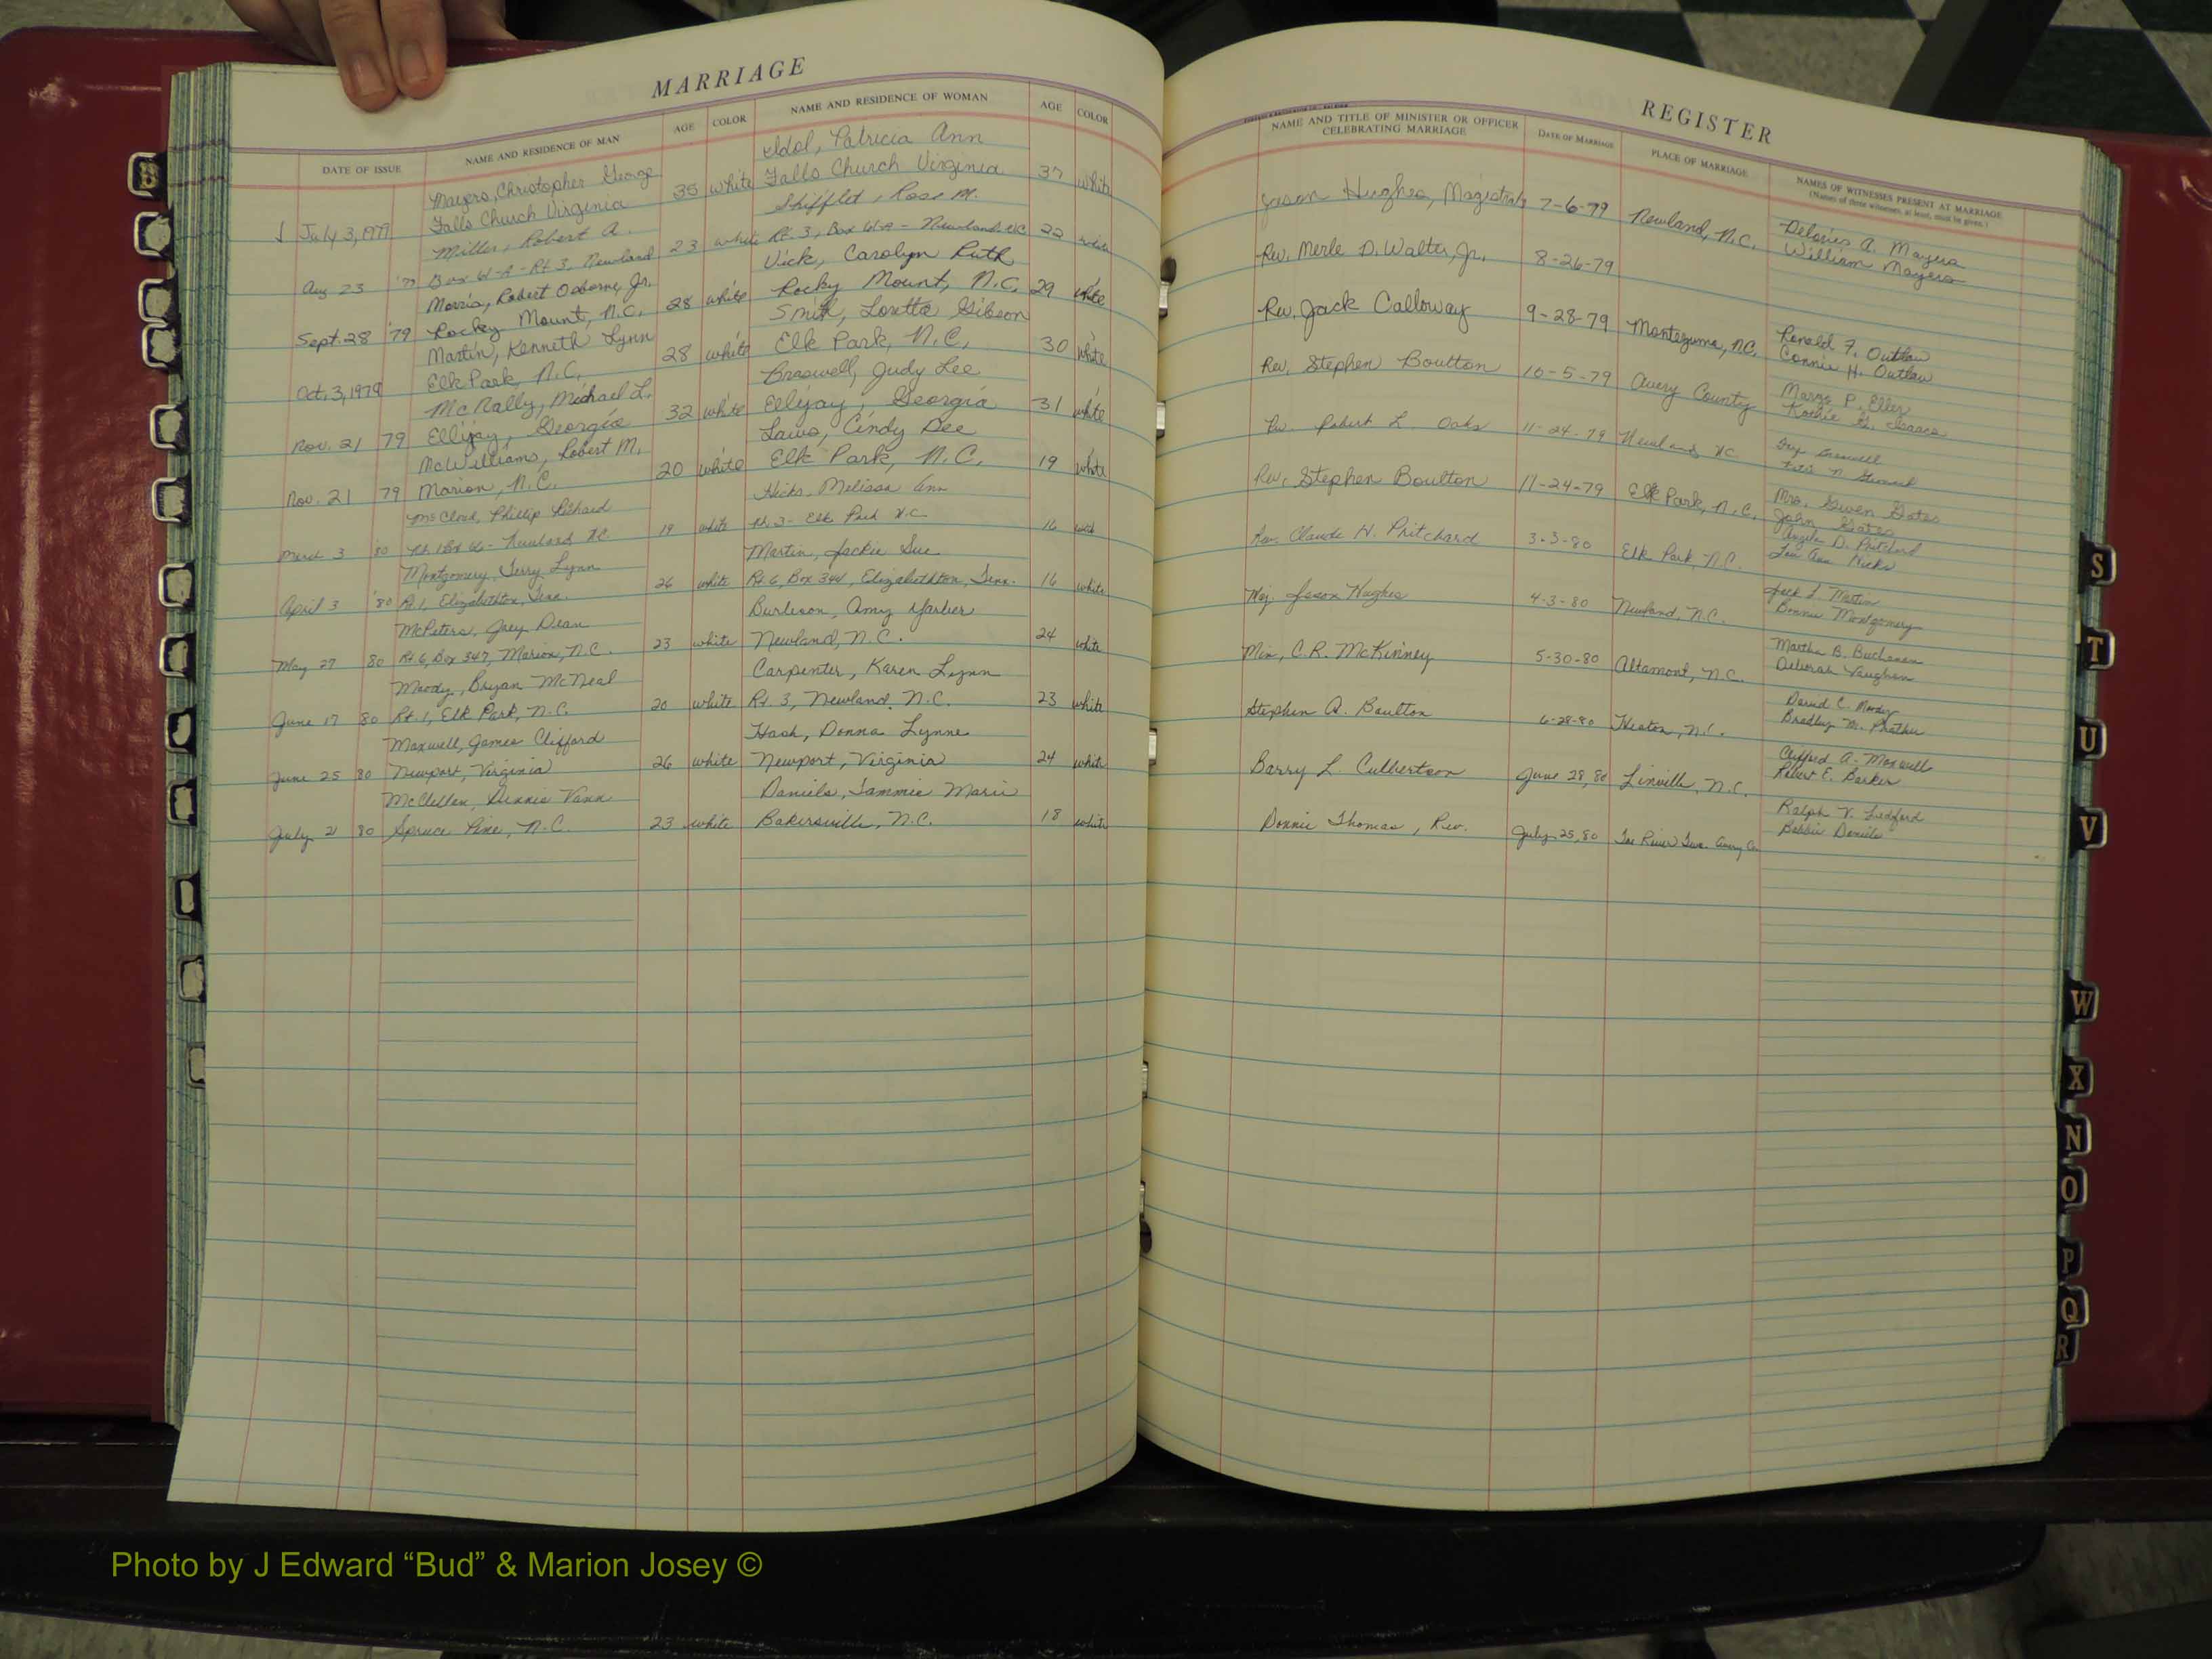 MARRIAGE
DATE OF ISSUE NAME AND RESIDENCE OF MAN AGE COLOR NAME AND RESIDENCE OF WOMAN AGE COLOR
Idol, Patricia Ann
Mayers, Christopher George 35 white Falls Church Virginia 37 white
July 3, 1979 Falls Church Virginia
Shifflet, Rose M.
Miller, Robert A. 23 white Rt. 3, Box 61-A - Newland, NC 22 white
Aug 23 '79 Box 61-A - Rt 3, Newland
Vick, Carolyn Ruth
Morris, Robert Osborne, Jr. 28 white Rocky Mount, N.C. 29 white
Sept. 28 '79 Rocky Mount, N.C.
Smith, Loretta Gibson
Martin, Kenneth Lynn 28 white Elk Park, N.C. 30 white
Oct. 3, 1979 Elk Park, N.C.
Braswell, Judy Lee
McNally, Michael L. 32 white Ellijay, Georgia 31 white
Nov. 21 79 Ellijay, Georgia
Laws, Cindy Dee
McWilliams, Robert M. 20 white Elk Park, N.C. 19 white
Nov. 21 79 Marion, N.C.
Hicks, Melissa Ann
McCloud, Phillip Richard 19 white Rt. 3 - Elk Park N.C. 16
March 3 80 Newland NC
Martin, Jackie Sue
Montgomery, Terry Lynn 26 white Rt. 6, Box 344, Elizabethton, Tenn. 16 white
April 3 '80 Rt 1, Elizabethton, Tenn.
Burleson, Amy Yarber
McPeters, Joey Dean 23 white Newland, N.C. 24 white
May 27 80 Rt. 6, Box 347, Marion, N.C.
Carpenter, Karen Lynn
Moody, Bryan McNeal 20 white Rt. 3, Newland, N.C. 23 white
June 17 80 Rt. 1, Elk Park, N.C.
Hash, Donna Lynne
Maxwell, James Clifford 26 white Newport, Virginia 24 white
June 25 80 Newport, Virginia
Daniels, Tammie Marie
McClellan, Dennis Vann 23 white Bakersville, N.C. 18 white
July 21 80 Spruce Pine, N.C.
REGISTER
NAME AND TITLE OF MINISTER OR OFFICER CELEBRATING MARRIAGE DATE OF MARRIAGE PLACE OF MARRIAGE NAMES OF WITNESSES PRESENT AT MARRIAGE
(Names of three witnesses, at least, must be given.)
Jason Hughes, Magistrate 7-6-79 Newland, N.C. Delories A. Mayers
William Mayers
Rev. Merle D. Walter, Jr. 8-26-79
Rev. Jack Calloway 9-28-79 Montezuma, N.C. Ronald F. Outlaw
Connie H. Outlaw
Rev. Stephen Boulton 10-5-79 Avery County Margo P. Eller
Kathie G. Isaacs
Rev. Robert L. Oaks 11-24-79 Newland NC
Rev. Stephen Boulton 11-24-79 Elk Park, N.C. Mrs. Gwen Gates
John Gates
Rev. Claude H. Pritchard 3-3-80 Elk Park N.C. Angela D. Pritchard
Lou Ann Hicks
Maj. Jason Hughes 4-3-80 Newland, N.C. Jack L. Martin
Bonnie Montgomery
Min. C.R. McKinney 5-30-80 Altamont, N.C. Martha B. Buchanan
Deborah Vaughan
Stephen A. Boulton 6-28-80 Heaton, N.C. David C. Moody
Bradley M. Prather
Barry L. Culbertson June 28, 80 Linville, N.C. Clifford A. Maxwell
Robert E. Barker
Donnie Thomas, Rev. July 25, 80 Toe River Twn. Avery Co. Ralph V. Ledford
Bobbie Daniels
S
T
U
V
W
X
N
O
P
Q
R
Photo by J Edward “Bud” & Marion Josey ©